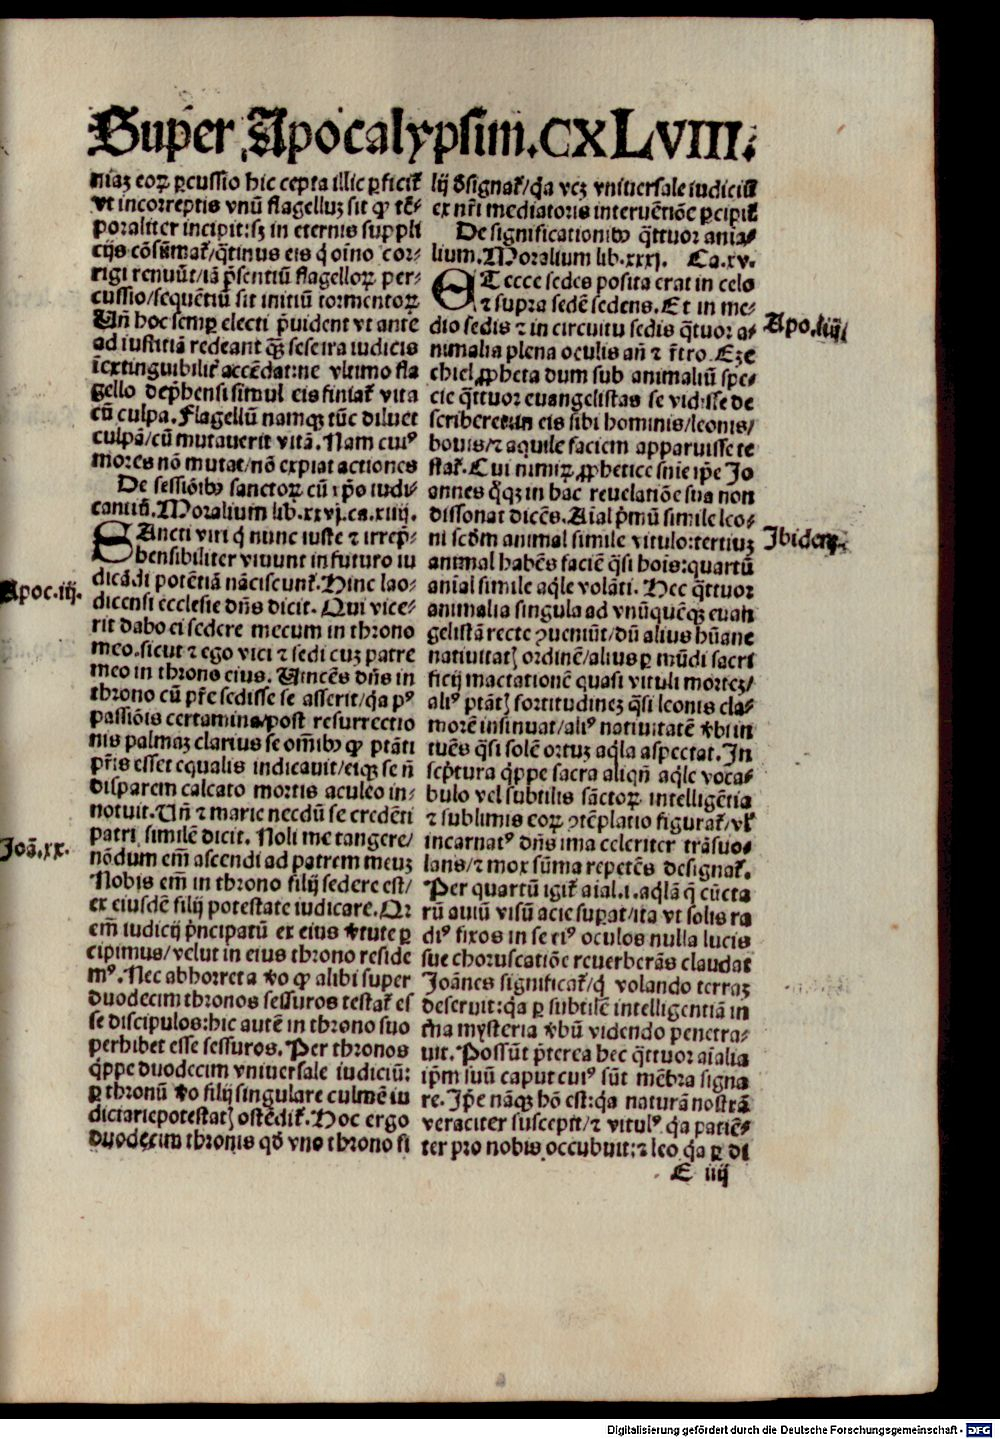 Super Apocalypsim. CXLVIII.
niaʒ eoꝝ ꝑcussio hic cepta illic ꝑficit᷑
vt incorreptis vnū flagelluʒ sit ꝙ tē-
poraliter incipit: sʒ in eternis suppli
cijs cōsūmat᷑/q̄tinus eis q̇ oīno cor-
rigi renuūt/iā p̄sentiū flagelloꝝ per-
cussio/sequētiū sit initiū tormentoꝝ
Vn̄ hoc semꝑ electi p̄uident vt ante
ad iustitiā redeant q̄ʒ sese ira iudicis
īextinguibilit᷑ accēdat: ne vltimo fla
gello dep̄hensi simul eis finiat᷑ vita
cū culpa. Flagellū namqʒ tūc diluet
culpā/cū mutauerit vitā. Nam cuiꝰ
mores nō mutat/nō expiat actiones
De sessiōibꝰ sanctoꝝ cū xp̄o iudi-
cantiū. Moralium lib. xxvj. ca. xiiij.
SAncti viri q̇ nunc iuste ⁊ irrep̄-
hensibiliter viuunt in futuro iu
dicādi potētiā nāciscunt᷑. Hinc lao-
Apoc. iij.
dicensi ecclesie dn̄s dicit. Qui vice-
rit dabo ei sedere mecum in throno
meo. sicut ⁊ ego vici ⁊ sedi cuʒ patre
meo in throno eius. Vincēs dn̄s in
throno cū pr̄e sedisse se asserit/q̇a pꝰ
passiōis certamina/post resurrectio
nis palmaʒ clarius se om̄ibꝰ ꝙ ptāti
pr̄is esset equalis indicauit/eiqʒ se n̄
disparem calcato mortis aculeo in-
notuit. Vn̄ ⁊ marie necdū se credēti
patri similē dicit. Noli me tangere/
Joā. xx.
nōdum em̄ ascendi ad patrem meuʒ
Nobis em̄ in throno filij sedere est/
ex eiusdē filij potestate iudicare. Qꝛ
em̄ iudicij p̄ncipatū ex eius v̄tute ꝑ
cipimus/velut in eius throno reside
mꝰ. Nec abhorret a v̄o ꝙ alibi super
duodecim thronos sessuros testat᷑ es
se discipulos: hic autē in throno suo
perhibet esse sessuros. Per thronos
q̇ppe duodecim vniuersale iudiciū:
ꝑ thronū v̄o filij singulare culmē iu
diciarie potestatꝭ ostēdit᷑. Hoc ergo
duodecim thronis qd̄ vno throno si
lij d̄signat᷑/q̇a vcʒ vniuersale iudiciū
ex nr̄i mediatoris interuētiōe ꝑcipit᷑
De significationibꝰ q̄ttuor ania-
lium. Moralium lib. xxxj. Ca. xv.
ET ecce sedes posita erat in celo
⁊ supra sedē sedens. Et in me-
dio sedis ⁊ in circuitu sedis q̄ttuor a-
Apo. iiij.
nimalia plena oculis an̄ ⁊ r̄tro. Eze
chiel ꝓpheta dum sub animaliū spe-
cie q̄ttuor euangelistas se vidisse de
scriberet/in eis sibi hominis/leonis/
bouis/⁊ aquile faciem apparuisse te
stat᷑. Cui nimiꝝ ꝓphetice s̄nie ip̄e Jo
annes q̊qʒ in hac reuelatiōe sua non
dissonat dicēs. Aīal p̄mū simile leo-
ni scd̄m animal simile vitulo: tertiuʒ
Ibidem.
animal habēs faciē q̄si hoīs: quartū
anīal simile aq̇le volāti. Hec q̄ttuor
animalia singula ad vnūquēqʒ euan
gelistā recte ꝯueniūt/dū alius hūane
natiuitatꝭ ordinē/alius ꝑ mūdi sacri
ficij mactationē quasi vituli morteʒ/
aliꝰ ptātꝭ fortitudineʒ q̄si leonis cla-
morē insinuat/aliꝰ natiuitatē v̄bi in
tuēs q̄si solē ortuʒ aq̇la aspectat. In
scp̄tura q̇ppe sacra aliqn̄ aq̇le voca-
bulo vel subtilis sāctoꝝ intelligētia
⁊ sublimis eoꝝ ꝯtēplatio figurat᷑/vl᷑
incarnatꝰ dn̄s ima celeriter trāsuo-
lans/⁊ mox sūma repetēs designat᷑.
Per quartū igit᷑ aīal .i. aq̇lā q̄ cūcta
rū auiū visū acie suꝑat/ita vt solis ra
diꝰ fixos in se eiꝰ oculos nulla lucis
sue choruscatiōe reuerberās claudat
Joānes significat᷑/q̇ volando terraʒ
deseruit: q̇a ꝑ subtilē intelligentiā in
t̄na mysteria v̄bū videndo penetra-
uit. Possūt p̄terea hec q̄ttuor aīalia
ip̄m suū caput cuiꝰ sūt mēbra signa
re. Ip̄e nāqʒ hō est: q̇a naturā nostrā
veraciter suscepit/⁊ vitulꝰ q̇a patiē-
ter pro nobis occubuit: ⁊ leo q̇a ꝑ di
E iiij
Digitalisierung gefördert durch die Deutsche Forschungsgemeinschaft - DFG